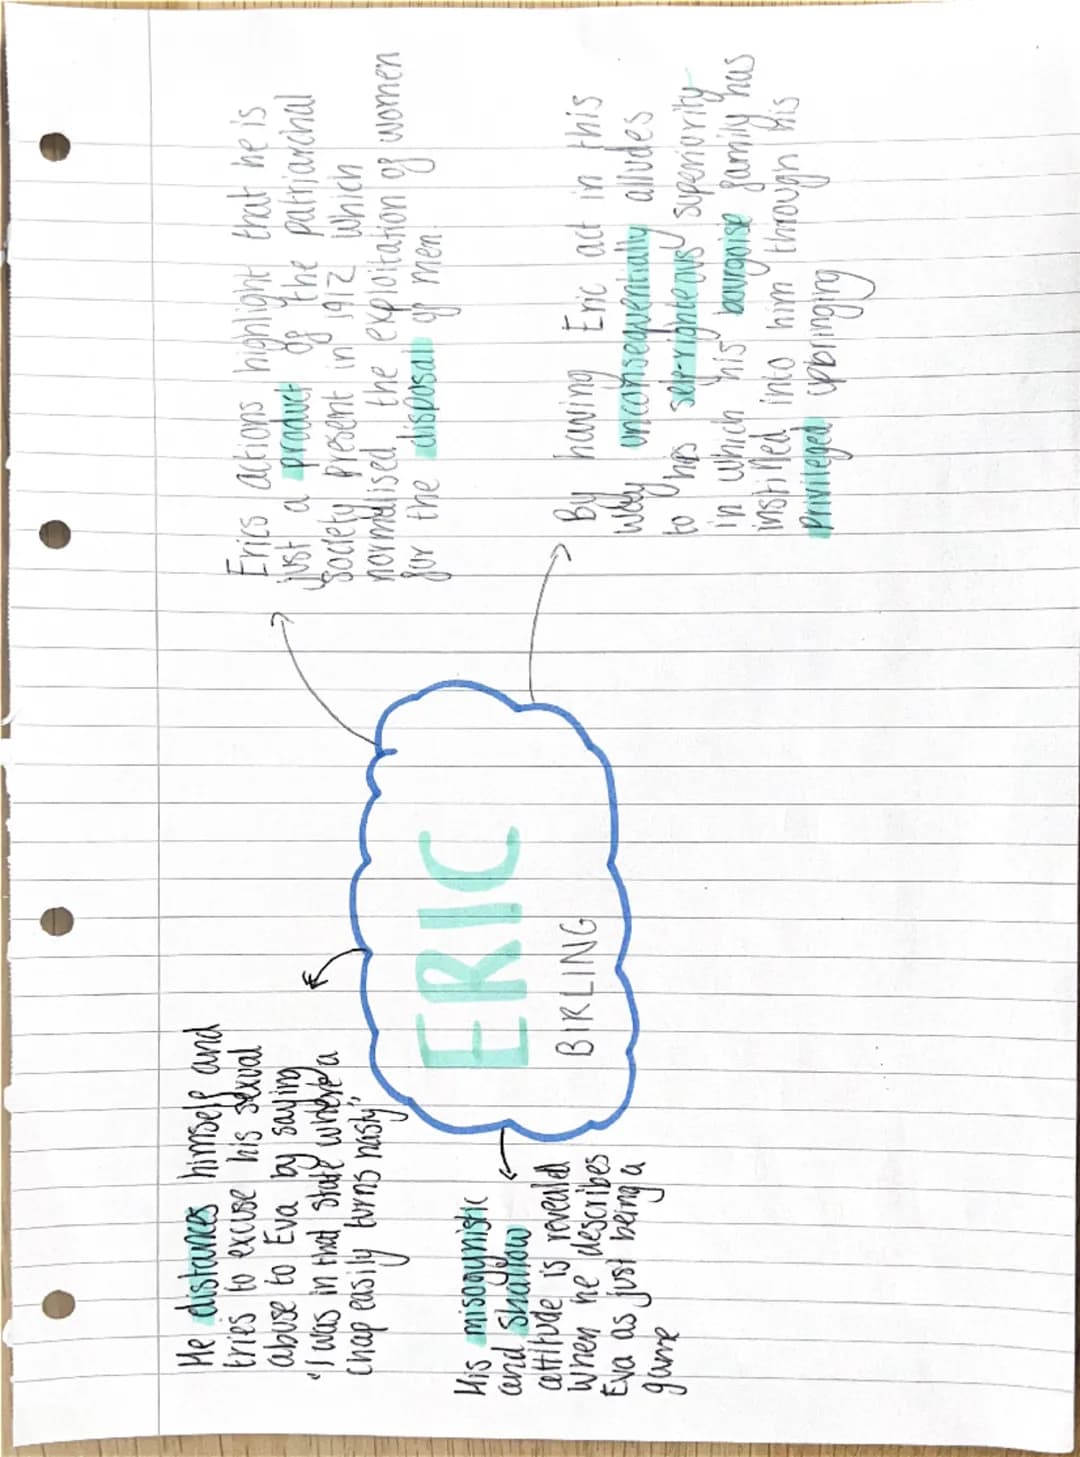 He distances himself and
tries to excuse his sexual
abuse to Eva by saying
"I was in that state where a
chap easily turns nasty"
His misogynistic
and shallow
attitude is revealed
when he describes
Eva as just being a
game
ERIC
BIRLING
Erics actions highlight that he is
just a product of the patriarchal
society present in 1912 which
normalised the exploitation of women
for the disposal of men.
By having Eric act in this
way unconsequentially alludes
to his self-righteous superiority
in which his bourgoise family has
instilled into him through his
privileged upbringing